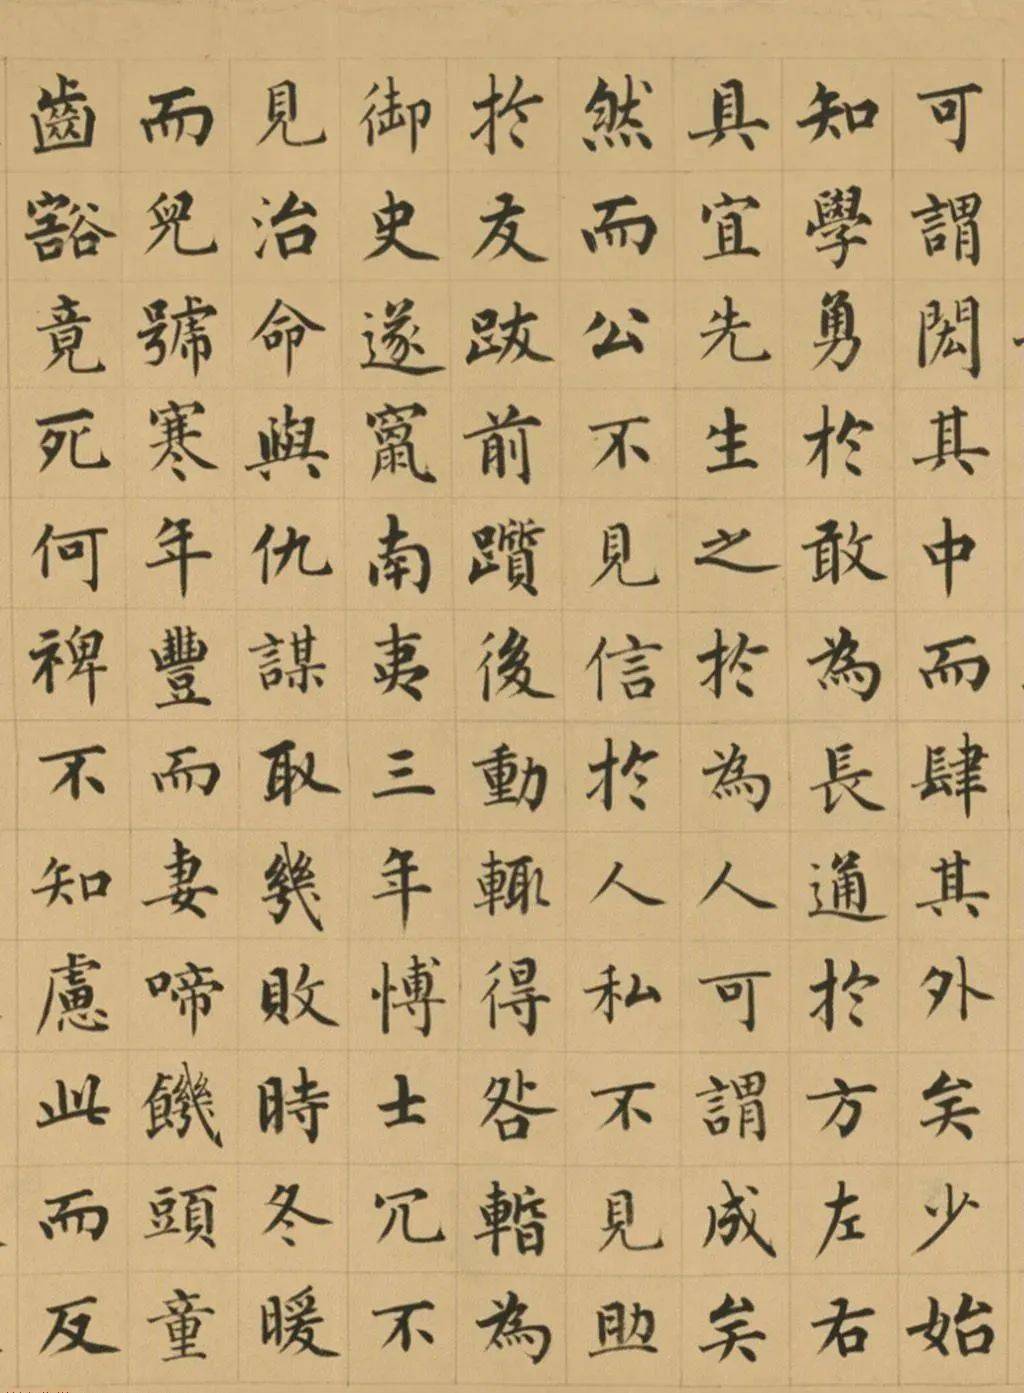 可謂閎其中而肆其外矣少始
知學勇於敢為長通於方左右
具宜先生之於為人可謂成矣
然而公不見信於人私不見助
於友跋前躓後動輒得咎暫為
御史遂竄南夷三年博士冗不
見治命與仇謀取幾敗時冬暖
而兒號寒年豐而妻啼饑頭童
齒豁竟死何裨不知慮此而反